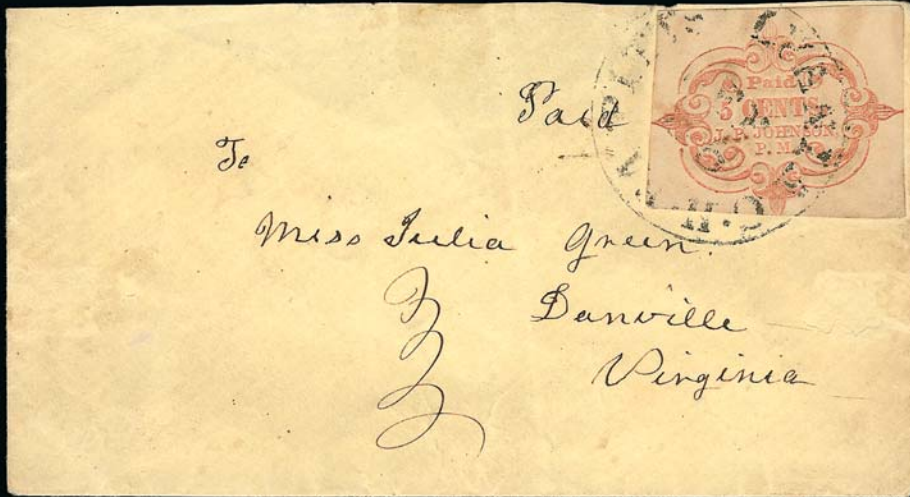 Paid
5 CENTS
J. P. JOHNSON
P. M.
Paid
To
Miss Julia Green.
Danville
Virginia